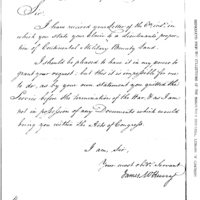 Sir,
I have received your Letter of the 6th inst. in
which you state your Claim to a Lieutenants propor-
tion of Continental & Military Bounty Land.
I should be pleased to have it in my power to
grant your request; but this it is impossible for me
to do, as by your own statement you quitted the
Service before the termination of the War, & as I am
not in possession of any Documents which would
bring you within the Acts of Congress.
I am Sir,
Your most obdt. Servant
James McHenry